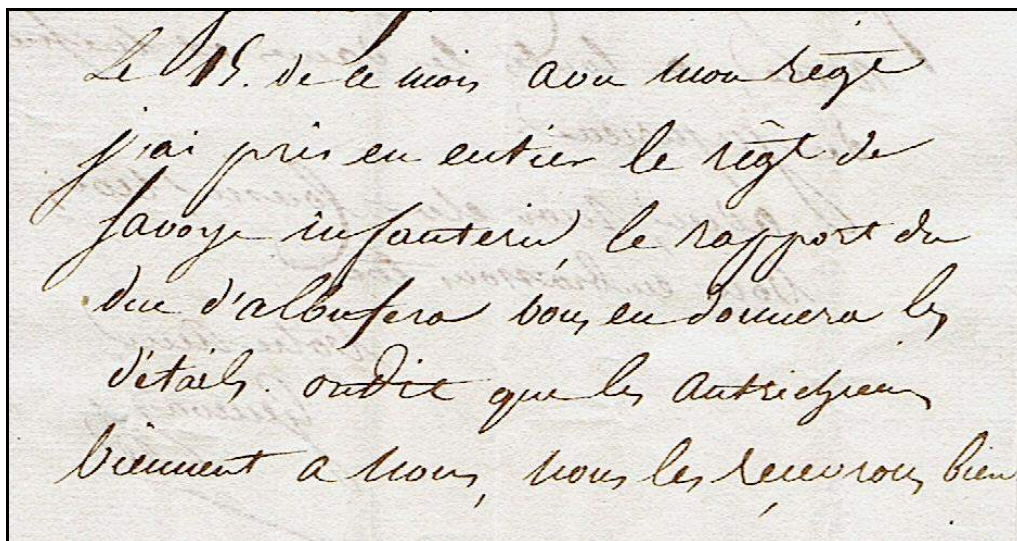 Le 15. de ce mois avec mon régt
j'ai pris en entier le régt de
Savoye infanterie, le rapport du
duc d'albufera vous en donnera les
détails. on dit que les autrichiens
viennent a nous, nous les recevrons bien